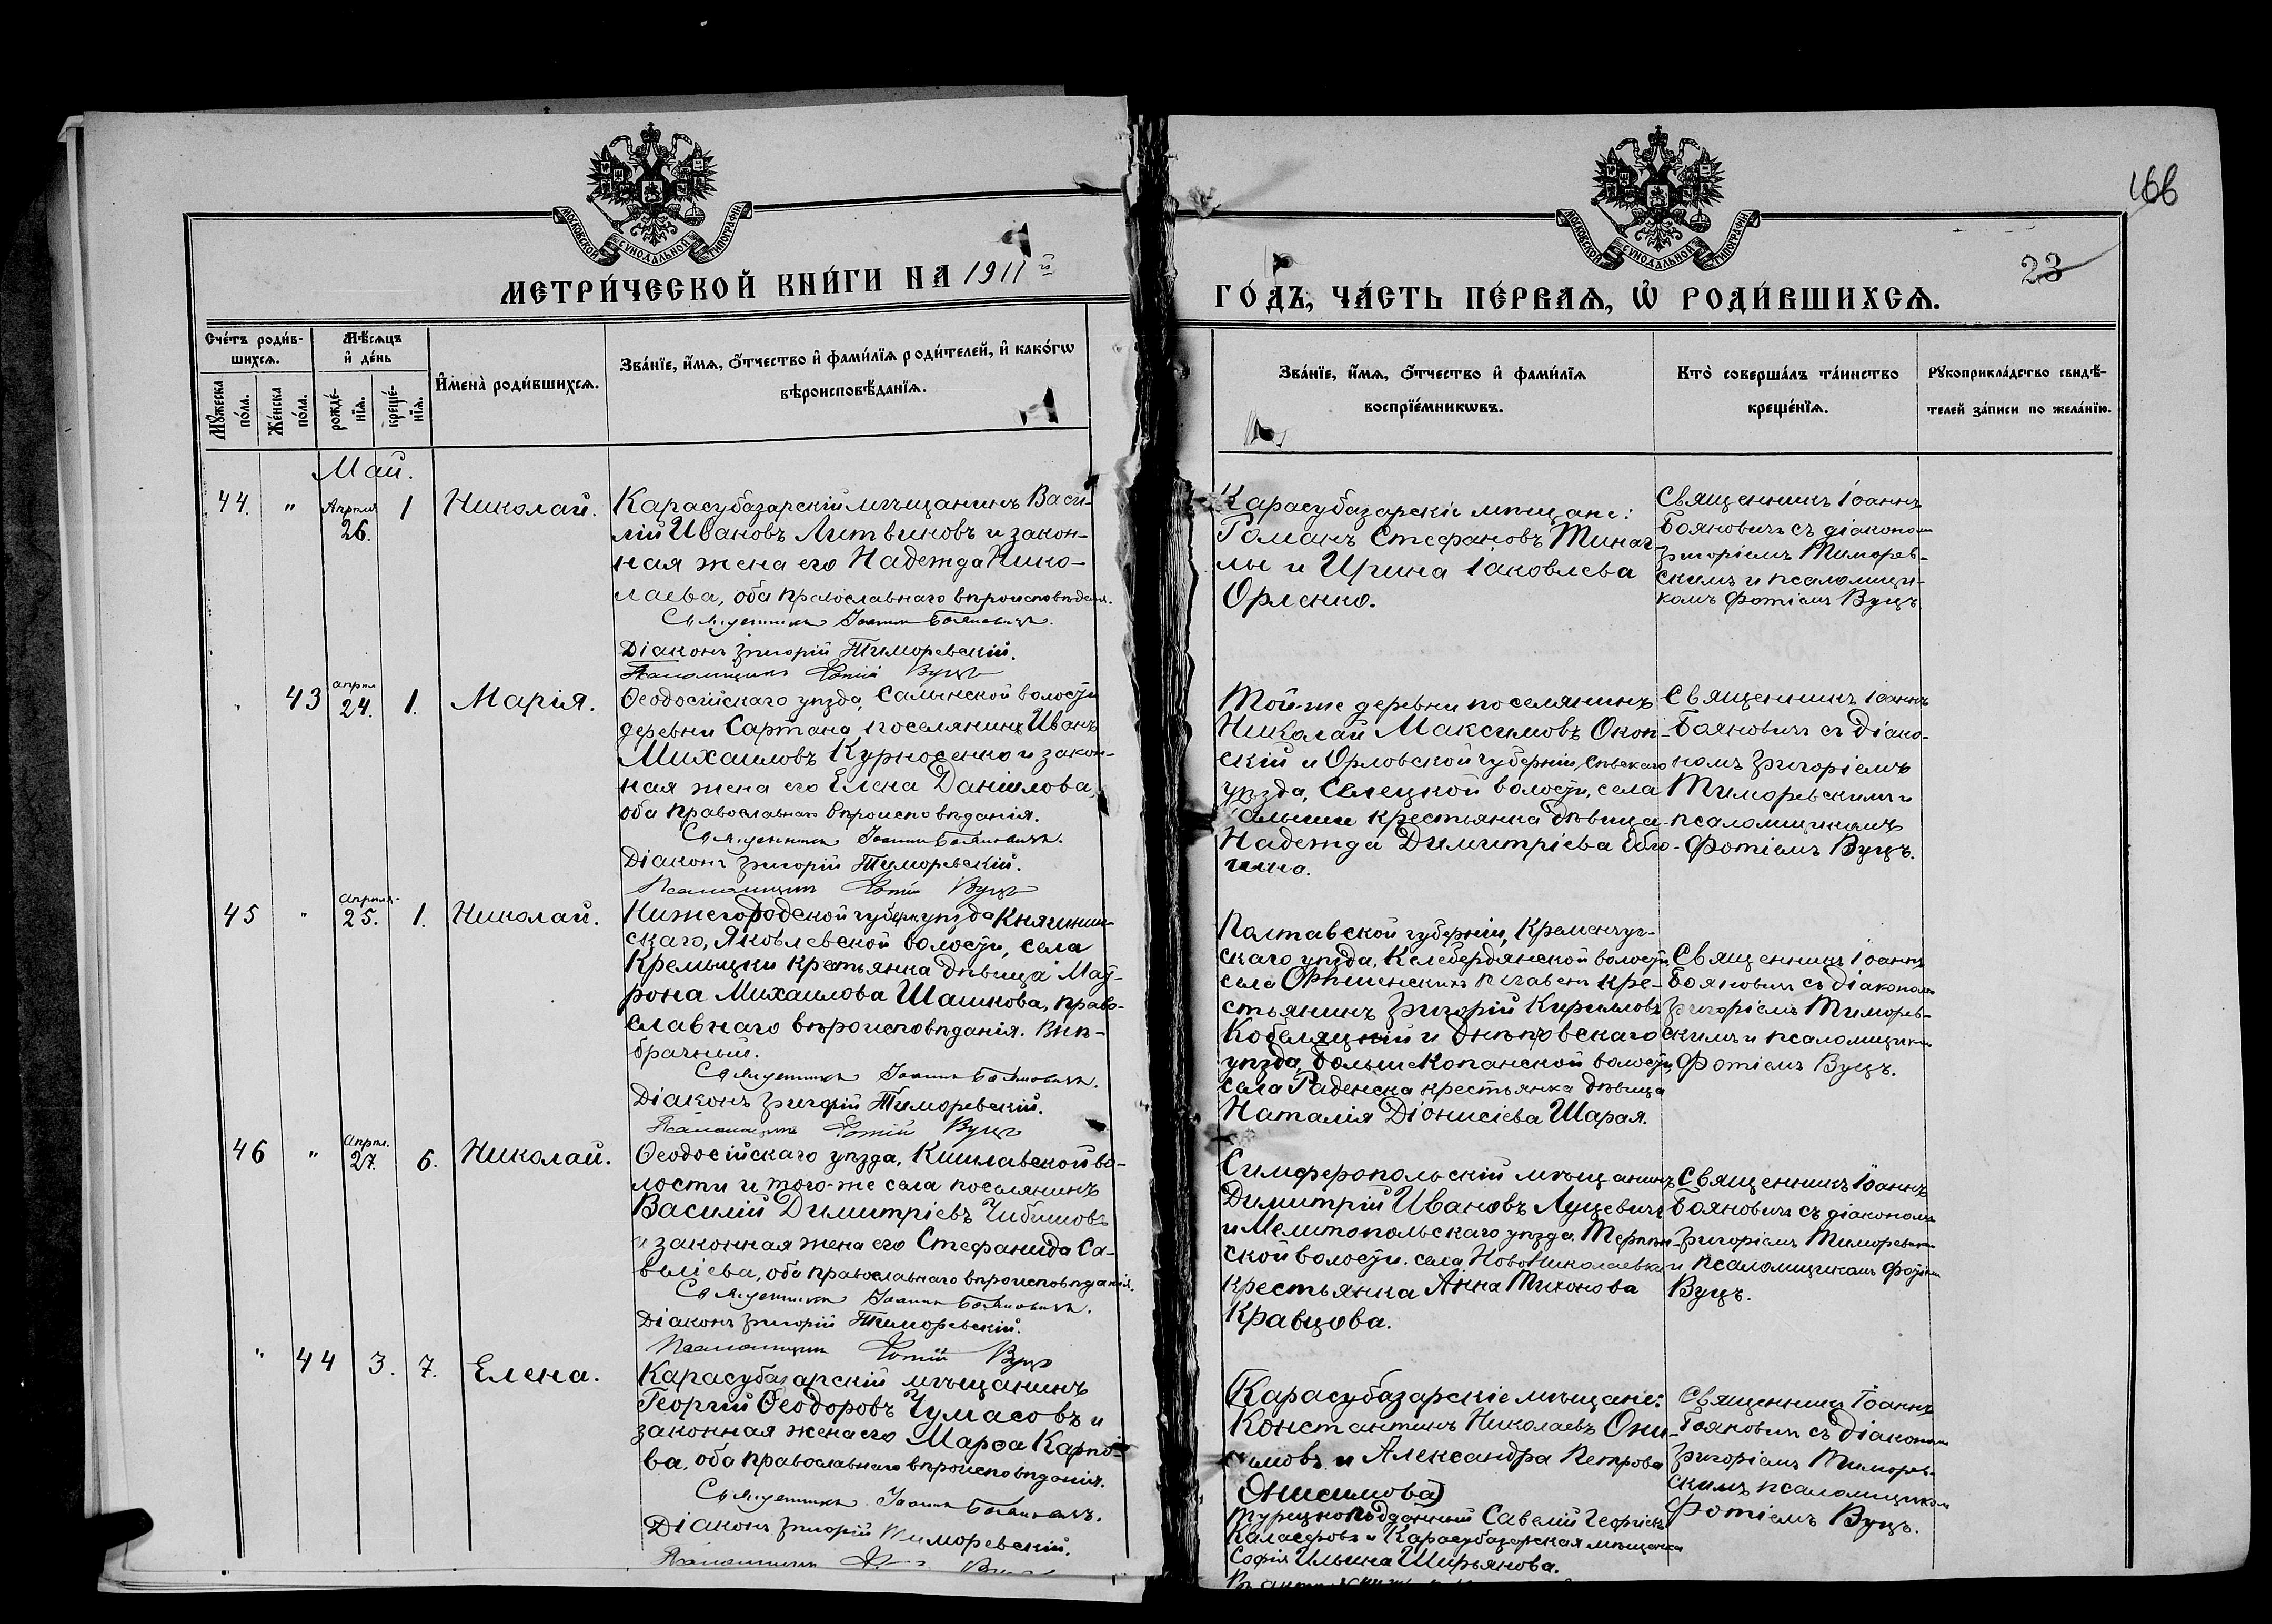 166
23
МОСКОВСКОЙ СѴНОДАЛЬНОЙ ТИПОГРАФІИ
МОСКОВСКОЙ СѴНОДАЛЬНОЙ ТИПОГРАФІИ
МЕТРИ́ЧЕСКОЙ КНИ́ГИ НА 1911 й
ГО́ДЪ, ЧА́СТЬ ПЕ́РВАѦ, Ѡ҆ РОДИ́ВШИХСѦ.
Сче́тъ роди́в-
шихсѧ.
Мꙋ́жеска по́ла.
Же́нска по́ла.
Мѣ́сѧцъ
и҆ де́нь
рожде́-
нїѧ.
креще́-
нїѧ.
И҆мена̀ роди́вшихсѧ.
Зва́нїе, и҆́мѧ, ѻ҆́тчество и҆ фами́лїѧ роди́телей, и҆ како́гѡ
вѣроисповѣ́данїѧ.
Зва́нїе, и҆́мѧ, ѻ҆́тчество и҆ фами́лїѧ
воспрїе́мникѡвъ.
Кто̀ соверша́лъ та́инство
креще́нїѧ.
Рꙋкоприкла́дство свидѣ́-
телей за́писи по жела́нїю.
Май.
44. " Апрѣля 26. 1 Николай.
Карасубазарскій мѣщанинъ Васи-
лій Ивановъ Литвиновъ и закон-
ная жена его Надежда Нико-
лаева, оба православнаго вѣроисповѣданія.
Священникъ Іоаннъ Бояновичъ.
Діаконъ Григорій Тиморевскій.
Псаломщикъ Фотій Вуцъ
Карасубазарскіе мѣщане:
Романъ Стефановъ
и Ирина Іаковлева
Орленко.
Священникъ Іоаннъ
Бояновичъ съ діакономъ
Григоріемъ Тиморев-
скимъ и псаломщи-
комъ Фотіемъ Вуцъ.
" 43 апрѣл 24. 1. Марія.
Ѳеодосійскаго уѣзда, Салынской волости
деревни Сартана, поселянинъ Иванъ
Михаиловъ Курносенко и закон-
ная жена его Елена Даніилова,
оба православнаго вѣроисповѣданія.
Священникъ Іоаннъ Бояновичъ.
Діаконъ Григорій Тиморевскій.
Псаломщикъ Фотій Вуцъ
Той-же деревни поселянинъ
Николай Максимовъ Окон-
скій и Орловской губерніи, Сѣвскаго
уѣзда, Селецкой волости, села
крестьянка дѣвица
Надежда Димитріева
Священникъ Іоаннъ
Бояновичъ съ Діако-
номъ Григоріемъ
Тиморевскимъ и
псаломщикомъ
Фотіемъ Вуцъ.
45 " апрѣля 25. 1. Николай.
Нижегородской губерн. уѣзда Княгинин-
скаго, Яковлевской волости, села
Кремыцки крестьянка дѣвица Мав-
рона Михаилова Шашкова, право-
славнаго вѣроисповѣданія. Внѣ-
брачный.
Священникъ Іоаннъ Бояновичъ.
Діаконъ Григорій Тиморевскій.
Псаломщикъ Фотій Вуцъ
Полтавской губерніи, Кременчуг-
скаго уѣзда, Келебердянской волости,
села кре-
стьянинъ Григорій Кирилловъ
Кобеляцкій и Днѣпровскаго
уѣзда, Больше Копанской волости,
села Раденска крестьянка дѣвица
Наталія Діонисіева Шарая.
Священникъ Іоаннъ
Бояновичъ съ діакономъ
Григоріемъ Тиморев-
скимъ и псаломщикомъ
Фотіемъ Вуцъ.
46 " Апрѣл. 27. 6. Николай.
Ѳеодосійскаго уѣзда, Кишлавской во-
лости и того-же села поселянинъ
Василій Димитріевъ Чибишовъ
и законная жена его Стефанида Са-
веліева, оба православнаго вѣроисповѣданія.
Священникъ Іоаннъ Бояновичъ.
Діаконъ Григорій Тиморевскій.
Псаломщикъ Фотій Вуцъ
Симферопольскій мѣщанинъ
Димитрій Ивановъ Луцевичъ
и Мелитопольскаго уѣзда, Терпѣн-
ской волости, села НовоНиколаевки
крестьянка Анна Тихонова
Кравцова.
Священникъ Іоаннъ
Бояновичъ съ діакономъ
Григоріемъ Тиморевским
и псаломщикомъ Фотіем
Вуцъ.
" 44 3. 7. Елена.
Карасубазарскій мѣщанинъ
Георгій Ѳеодоровъ Чумасовъ и
законная жена его Марѳа Карпо-
ва, оба православнаго вѣроисповѣданія.
Священникъ Іоаннъ Бояновичъ.
Діаконъ Григорій Тиморевскій.
Псаломщикъ Фотій Вуцъ
(Карасубазарскіе мѣщане:
Константинъ Николаевъ Они-
симовъ и Александра Петрова
Онисимова)
Турецкоподданный Савелій Георгіевъ
Каласеровъ и Карасубазарская мѣщанка
Софія Ильина Ширьянова.
Священникъ Іоаннъ
Бояновичъ съ Діакономъ
Григоріемъ Тиморев-
скимъ псаломщиком
Фотіемъ Вуцъ.